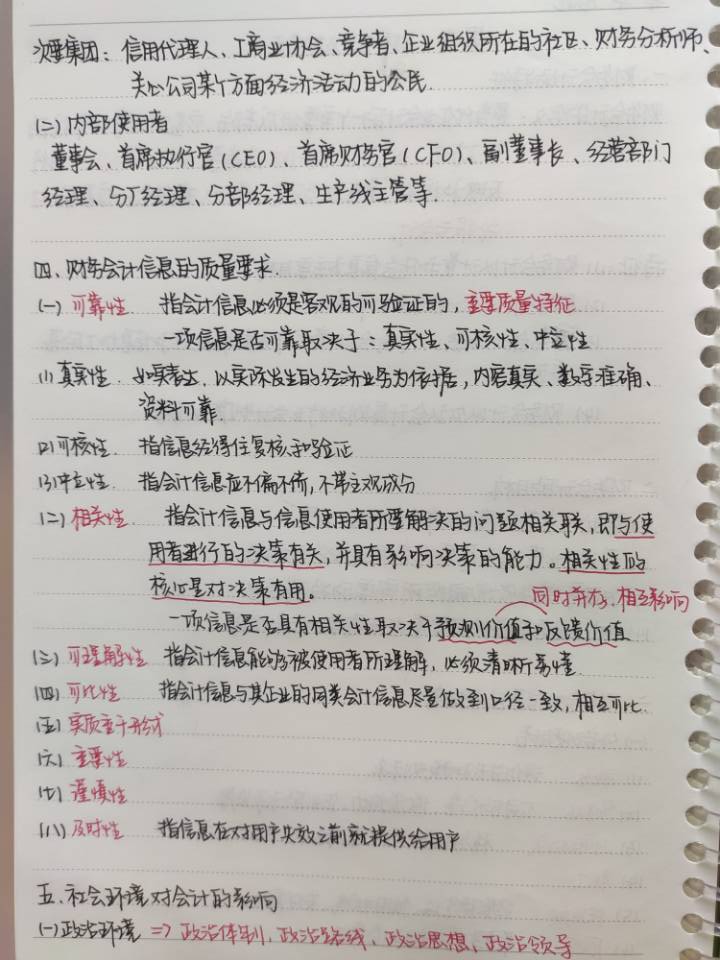 次要集团：信用代理人、工商业协会、竞争者、企业组织所在的社区、财务分析师、
关心公司某个方面经济活动的公民.
(二)内部使用者
董事会、首席执行官(CEO)、首席财务官(CFO)、副董事长、经营部门
经理、分厂经理、分部经理、生产线主管等.
四.财务会计信息的质量要求.
(一)可靠性. 指会计信息必须是客观的可验证的,主要质量特征
一项信息是否可靠取决于：真实性、可核性、中立性
(1)真实性. 如实表达,以实际发生的经济业务为依据,内容真实、数字准确、
资料可靠.
(2)可核性. 指信息经得住复核和验证
(3)中立性. 指会计信息应不偏不倚,不带主观成分
(二)相关性. 指会计信息与信息使用者所要解决的问题相关联,即与使
用者进行的决策有关,并具有影响决策的能力。相关性的
核心是对决策有用。
同时并存,相互影响
一项信息是否具有相关性取决于预测价值和反馈价值
(三)可理解性 指会计信息能够被使用者所理解,必须清晰易懂.
(四)可比性 指会计信息与其企业的同类会计信息尽量做到口径一致,相互可比.
(五)实质重于形式
(六)重要性
(七)谨慎性
(八)及时性 指信息在对用户失效之前就提供给用户
五.社会环境对会计的影响
(一)政治环境 => 政治体制、政治路线、政治思想、政治领导